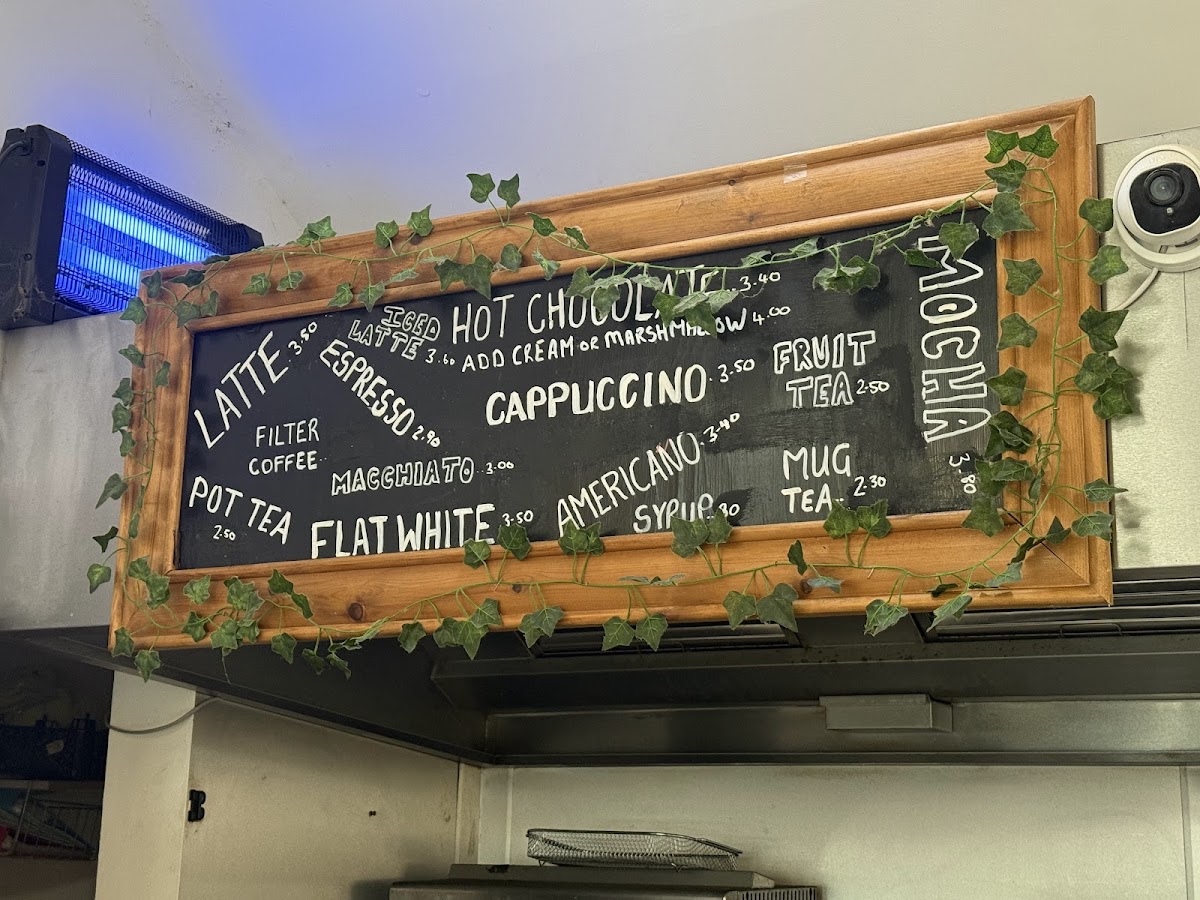 LATTE.3.50
ICED
LATTE 3.60
HOT CHOCOLATE..3.40
ADD CREAM OR MARSHMALLOW 4.00
ESPRESSO 2.90
CAPPUCCINO.3.50
FRUIT
TEA 2.50
MOCHA 3.80
FILTER
COFFEE..
MACCHIATO..3.00
AMERICANO.3.40
MUG
TEA..2.30
POT TEA
2.50
FLAT WHITE 3.50
SYRUP